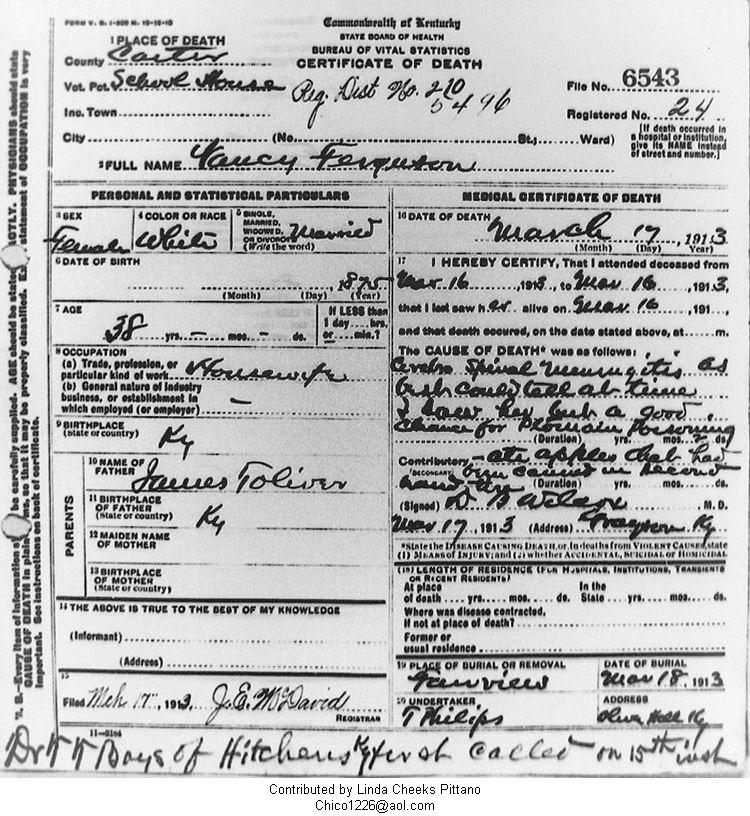 FORM V. S. 1-200 M. 10-15-10
Commonwealth of Kentucky
STATE BOARD OF HEALTH
BUREAU OF VITAL STATISTICS
CERTIFICATE OF DEATH
1 PLACE OF DEATH
County Carter
Vot. Pct. School House
Reg. Dist No. 210
5496
File No. 6543
Inc. Town
Registered No. 24
City (No. St.; Ward)
(If death occurred in a hospital or institution, give its NAME instead of street and number.)
2 FULL NAME Nancy Ferguson
PERSONAL AND STATISTICAL PARTICULARS
3 SEX Female
4 COLOR OR RACE White
5 SINGLE, MARRIED, WIDOWED, OR DIVORCED (Write the word) Married
6 DATE OF BIRTH
, 1875
(Month) (Day) (Year)
7 AGE
38 yrs. – mos. – ds.
If LESS than 1 day ... hrs. or ... min.?
8 OCCUPATION
(a) Trade, profession, or particular kind of work Housewife
(b) General nature of industry business, or establishment in which employed (or employer) –
9 BIRTHPLACE
(State or country) Ky
PARENTS
10 NAME OF FATHER James Toliver
11 BIRTHPLACE OF FATHER (State or country) Ky
12 MAIDEN NAME OF MOTHER
13 BIRTHPLACE OF MOTHER (State or country)
14 THE ABOVE IS TRUE TO THE BEST OF MY KNOWLEDGE
(Informant)
(Address)
15
Filed Mch 17, 1913, J.E. McDavid
REGISTRAR
11-3184
MEDICAL CERTIFICATE OF DEATH
16 DATE OF DEATH
March 17, 1913
(Month) (Day) (Year)
17 I HEREBY CERTIFY, That I attended deceased from
Mar 16, 1913, to Mar 16, 1913,
that I last saw her alive on Mar 16, 191
and that death occured, on the date stated above, at m.
The CAUSE OF DEATH* was as follows:
Cerebro Spinal Meningitis as
best could tell at time
I saw her but a good
chance for Ptomain Poisoning
(Duration) yrs. mos. 2 ds.
Contributory ate apples that had
(SECONDARY) been canned in second
hand tin (Duration) yrs. mos. ds.
(Signed) D B Wilcox M. D.
Mar 17, 1913 (Address) Grayson Ky
*State the DISEASE CAUSING DEATH, or, in deaths from VIOLENT CAUSES, state (1) MEANS OF INJURY; and (2) whether ACCIDENTAL, SUICIDAL OR HOMICIDAL
(18) LENGTH OF RESIDENCE (FOR HOSPITALS, INSTITUTIONS, TRANSIENTS OR RECENT RESIDENTS)
At place of death yrs. mos. ds. In the State yrs. mos. ds.
Where was disease contracted, If not at place of death?
Former or usual residence
19 PLACE OF BURIAL OR REMOVAL Fairview
DATE OF BURIAL Mar 18, 1913
20 UNDERTAKER T Philips
ADDRESS Olive Hill Ky
Dr Boys of Hitchens Ky first called on 15th inst
Contributed by Linda Cheeks Pittano
Chico1226@aol.com